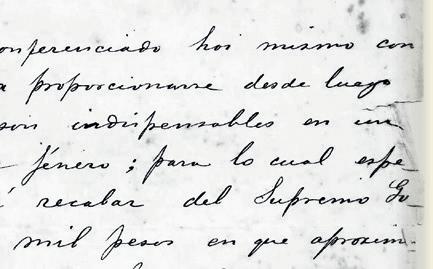 onferenciado hoi mismo con
a proporcionarse desde luego
son indispensables en un
jénero; para lo cual espe
recabar del Supremo Go
mil pesos en que aproxim-